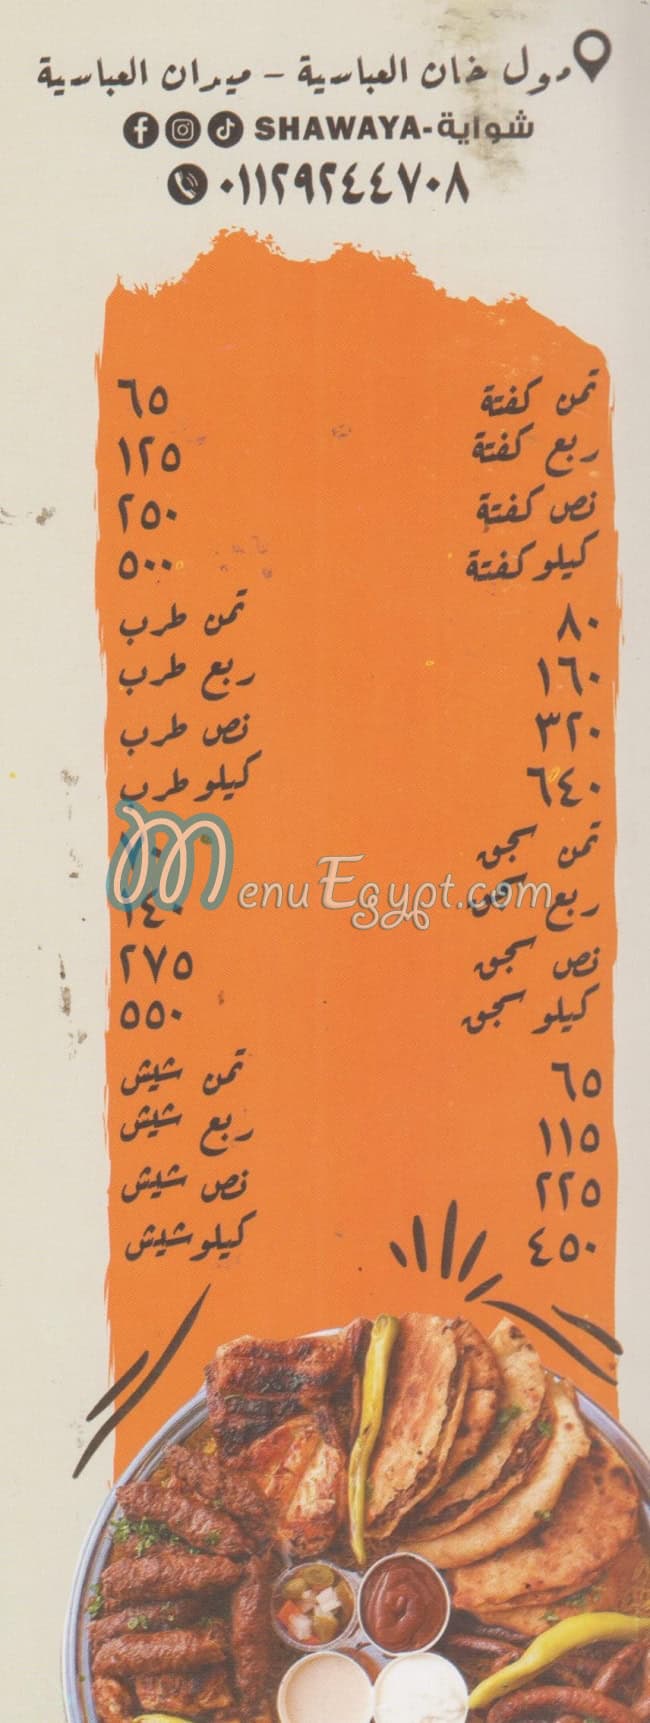 مول خان العباسية - ميدان العباسية
شواية-SHAWAYA
٠١١٢٩٢٤٤٧٠٨
تمن كفتة ٦٥
ربع كفتة ١٢٥
نص كفتة ٢٥٠
كيلو كفتة ٥٠٠
٨٠ تمن طرب
١٦٠ ربع طرب
٣٢٠ نص طرب
٦٤٠ كيلو طرب
تمن سجق
MenuEgypt.com
ربع سجق ١٤٠
نص سجق ٢٧٥
كيلو سجق ٥٥٠
٦٥ تمن شيش
١١٥ ربع شيش
٢٢٥ نص شيش
٤٥٠ كيلو شيش